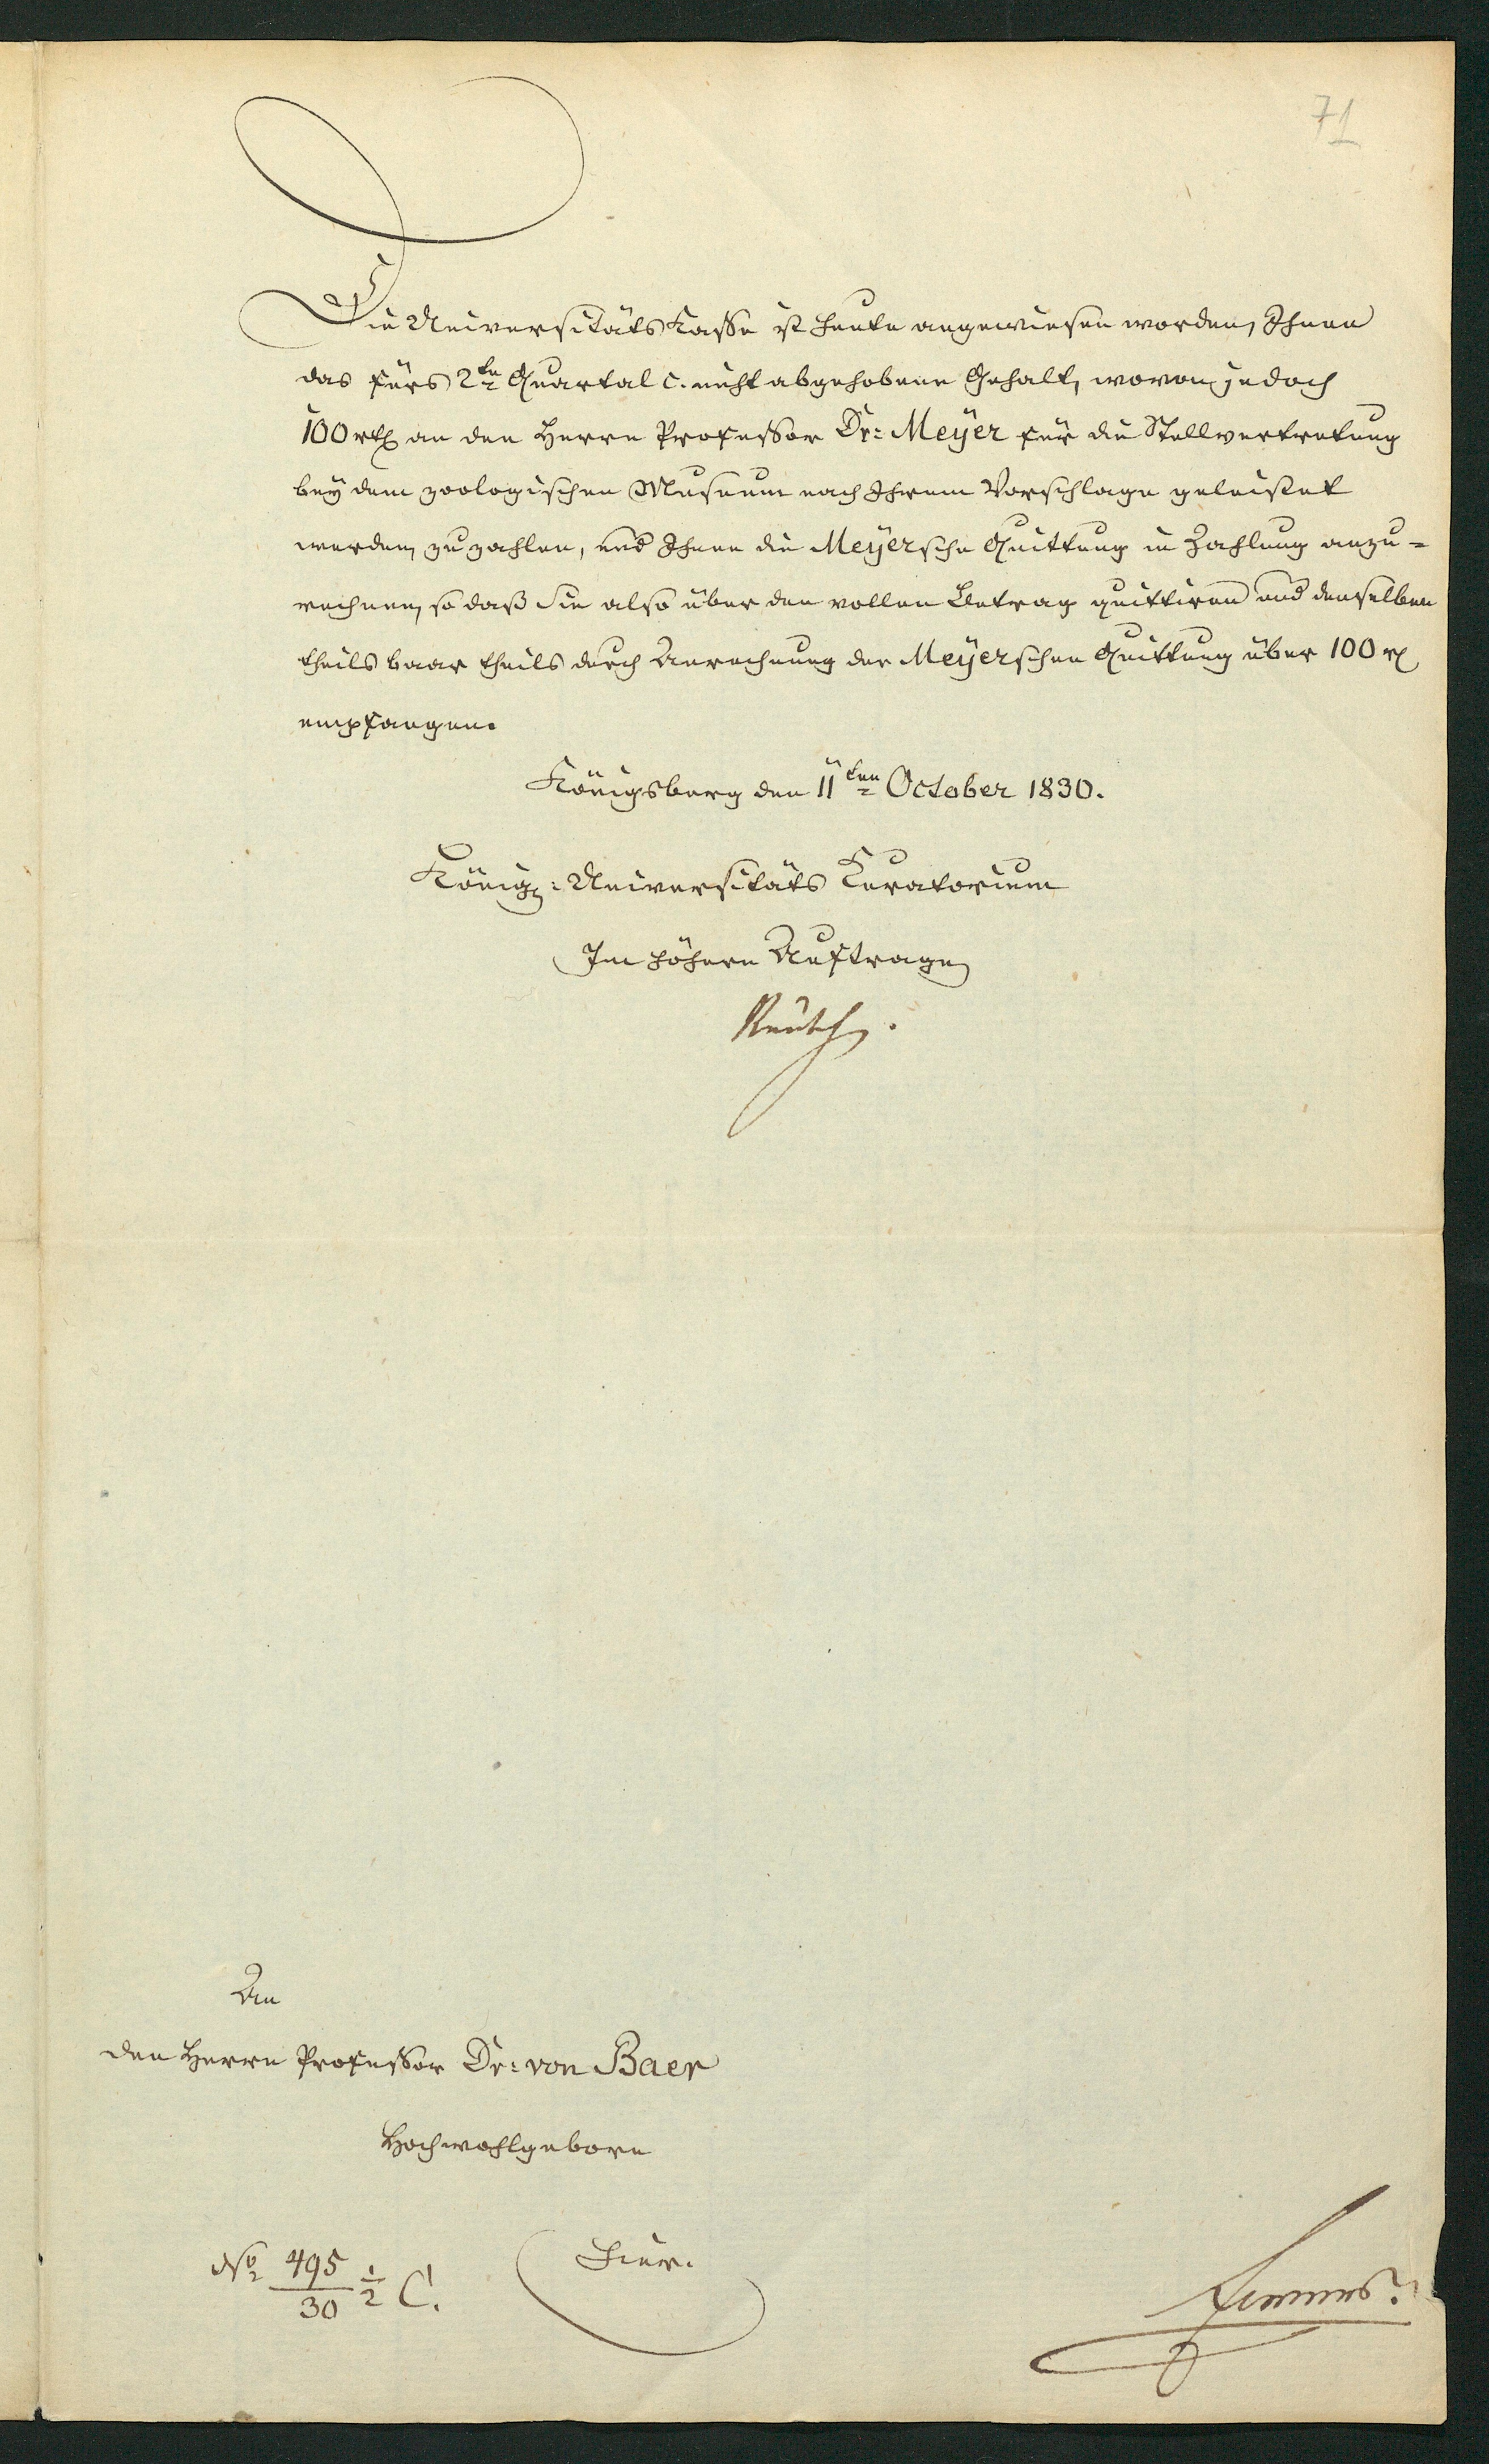 71
Die Universitäts Kasse ist heute angewiesen worden, Ihnen
das fürs 2te Quartal c. nicht abgehobene Gehalt, wovon jedoch
100 rtl an den Herrn Professor Dr: Meyer für die Stellvertretung
bey dem zoologischen Museum nach Ihrem Vorschlage geleistet
werden, zu zahlen, und Ihnen die Meyersche Quittung in Zahlung anzu-
rechnen, so daß Sie also über den vollen Betrag quittiren und denselben
theils baar theils durch Anrechnung der Meyerschen Quittung über 100 rl
empfangen.
Königsberg den 11ten October 1830.
Königl: Universitäts Curatorium
Im höhern Auftrage
An
den Herrn Professor Dr: von Baer
Hochwohlgeborn
Hier.
No 495/30 1/2 C.